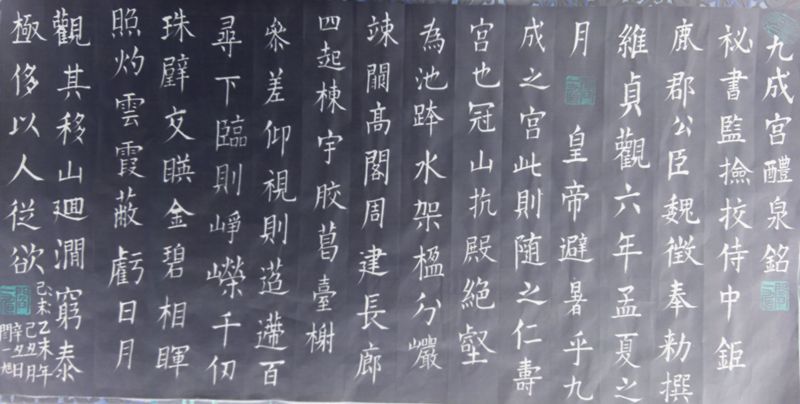 九成宮醴泉銘
秘書監撿挍侍中鉅
鹿郡公臣魏徵奉勑撰
維貞觀六年孟夏之
月 皇帝避暑乎九
成之宮此則随之仁壽
宮也冠山抗殿絕壑
為池跨水架楹分巖
竦闕高閣周建長廊
四起棟宇胶葛臺榭
參差仰視則迢遰百
尋下臨則崢嶸千仞
珠璧交暎金碧相暉
照灼雲霞蔽虧日月
觀其移山迴澗窮泰
極侈以人従欲
乙未年
己丑月